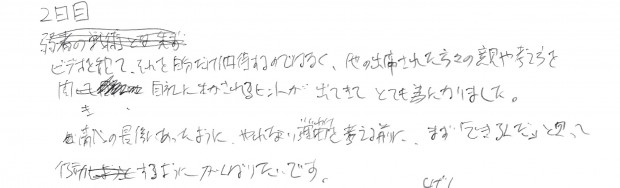 2日目
ビデオを観て、それを自分だけで期待するのではなく、他の出席された方々の意見や考え方を
聞き 自分に生かされるヒントが出てきて とても為になりました。
最後にあったように、やれない理由を考える前に、まず「できるんだ」と思って
行動するようにがんばりたいです。